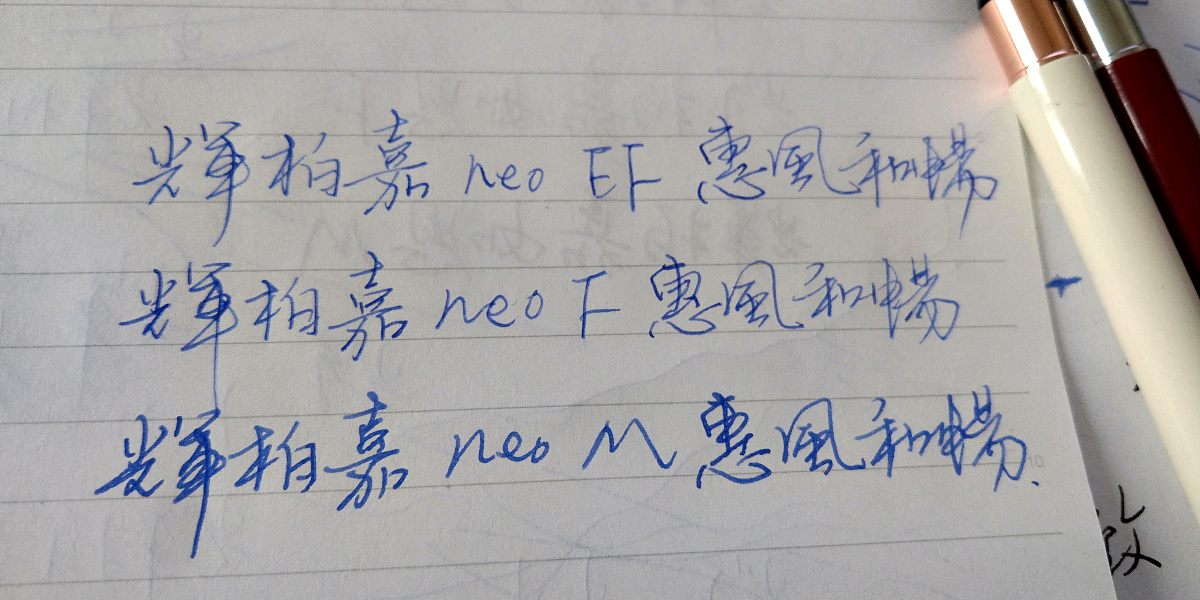 輝柏嘉 neo EF 惠風和暢
輝柏嘉 neo F 惠風和暢
輝柏嘉 neo M 惠風和暢.